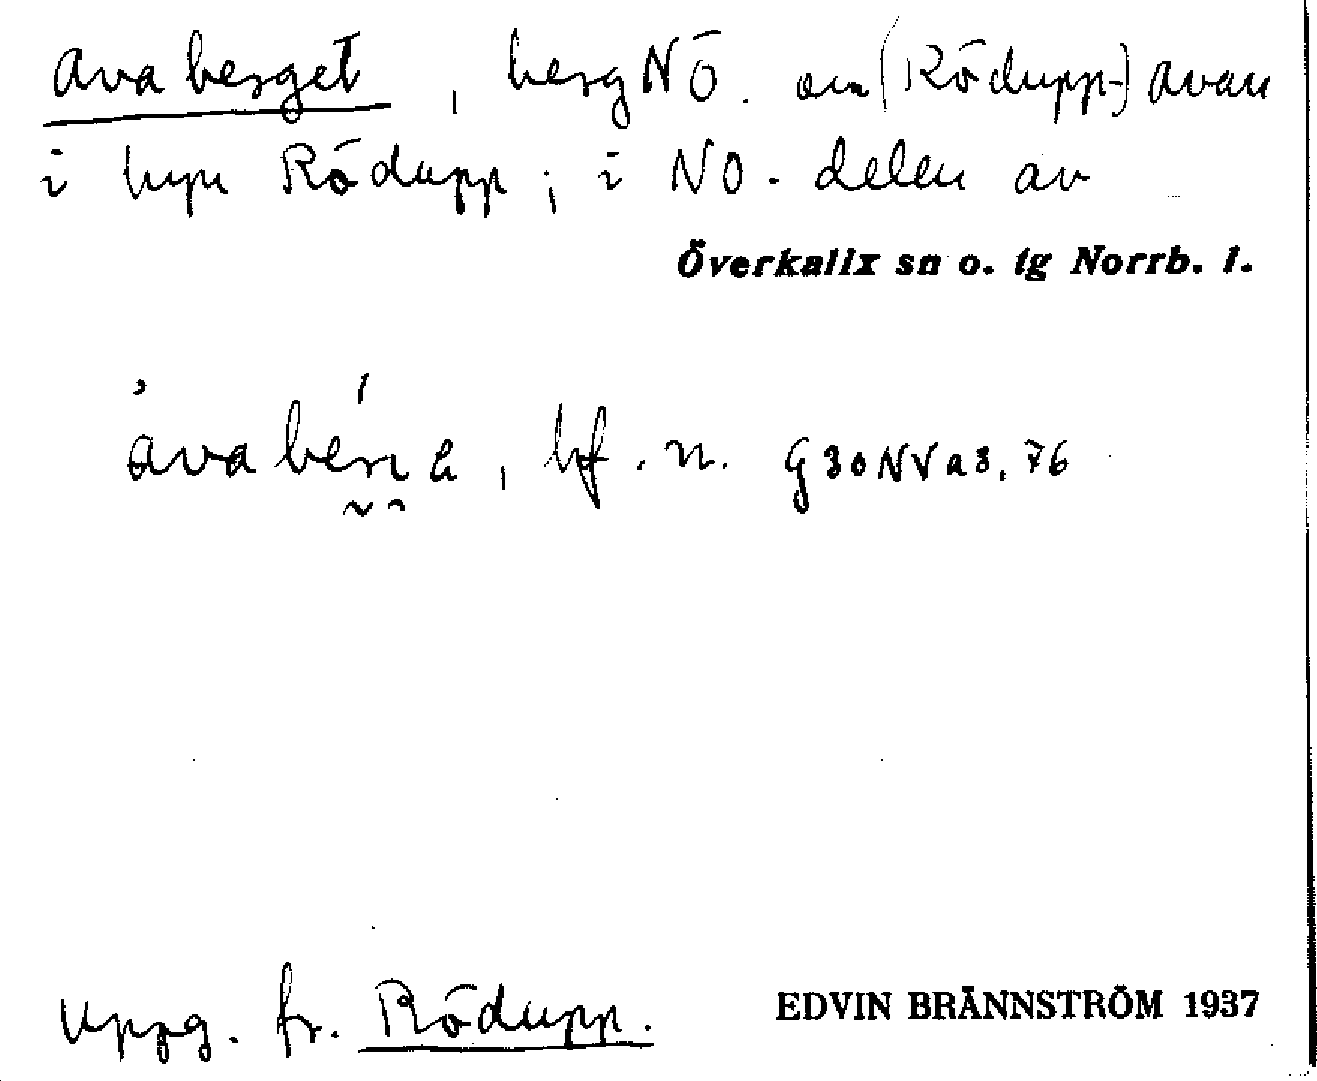 Avaberget, berg NÖ. om (Rödupp-)avan
i byn Rödupp; i NO. delen av
Överkalix sn o. tg Norrb. l.
, bf. n. G30NVa3.76
Uppg. fr. Rödupp.
EDVIN BRÄNNSTRÖM 1937